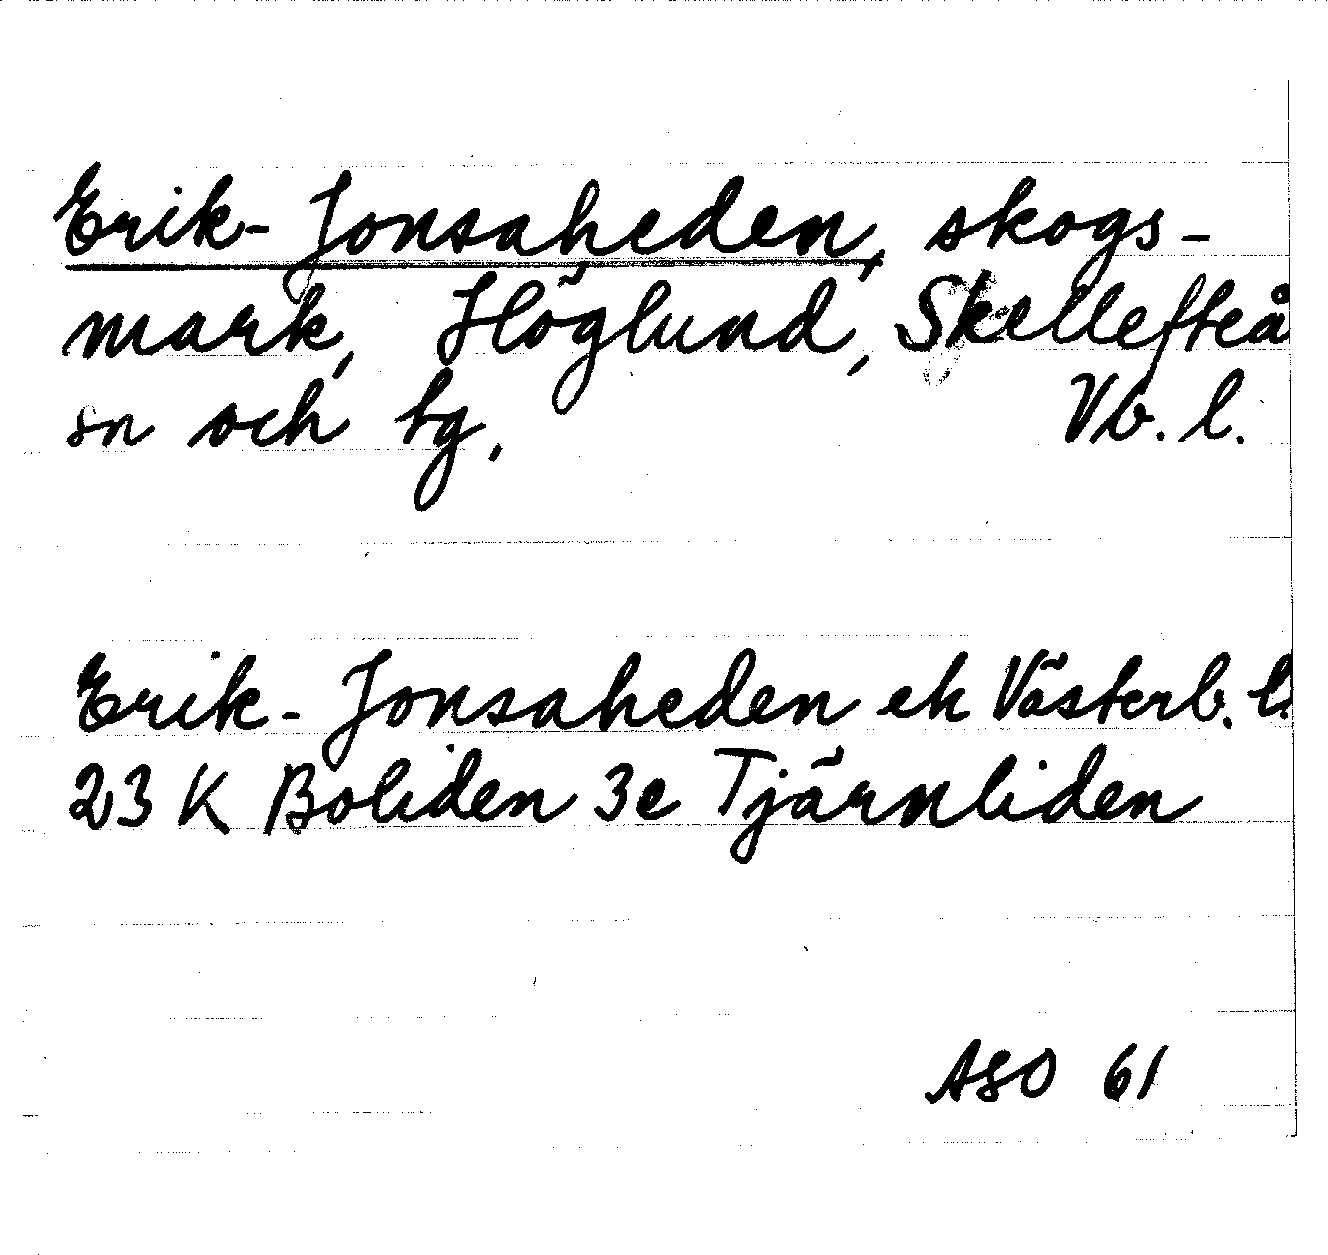 Erik-Jonsaheden, skogs-
mark, Höglund, Skellefteå
sn och tg, Vb. l.
Erik-Jonsaheden ek Västerb. l.
23 K Boliden 3e Tjärnliden
ASO 61